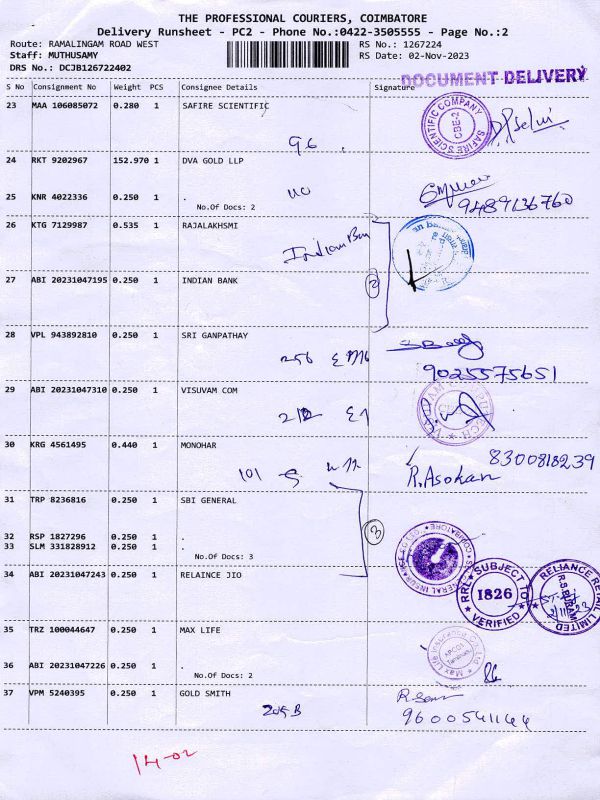 THE PROFESSIONAL COURIERS, COIMBATORE
Delivery Runsheet - PC2 - Phone No.:0422-3505555 - Page No.:2
Route: RAMALINGAM ROAD WEST RS No.: 1267224
Staff: MUTHUSAMY RS Date: 02-Nov-2023
DRS No.: DCJB126722402 DOCUMENT DELIVERY
S No Consignment No Weight PCS Consignee Details Signature
23 MAA 106085072 0.280 1 SAFIRE SCIENTIFIC
SAFIRE SCIENTIFIC COMPANY CBE-2
96
24 RKT 9202967 152.970 1 DVA GOLD LLP
25 KNR 4022336 0.250 1 .
9489136760
No.Of Docs: 2
26 KTG 7129987 0.535 1 RAJALAKHSMI
Indian Ban
27 ABI 20231047195 0.250 1 INDIAN BANK
2
28 VPL 943892810 0.250 1 SRI GANPATHAY
256
9025575651
29 ABI 20231047310 0.250 1 VISUVAM COM
212
30 KRG 4561495 0.440 1 MONOHAR
8300818239
101 R. Asokan
31 TRP 8236816 0.250 1 SBI GENERAL
3
32 RSP 1827296 0.250 1 .
33 SLM 331828912 0.250 1 .
No.Of Docs: 3
34 ABI 20231047243 0.250 1 RELAINCE JIO
RRL SUBJECT TO 1826 VERIFIED
RELIANCE RETAIL LIMITED R.S.PURAM
35 TRZ 100044647 0.250 1 MAX LIFE
36 ABI 20231047226 0.250 1 .
No.Of Docs: 2
37 VPM 5240395 0.250 1 GOLD SMITH
9600541144
14-02